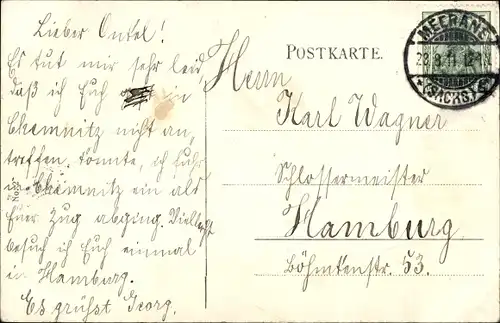 Lieber Onkel!
Es tut mir sehr leid,
daß ich Euch in
Chemnitz nicht an,
treffen konnte, ich fuhr
in Chemnitz ein als
Euer Zug abging. Vielleicht
besuch ich Euch einmal
in Hamburg.
Es grüßt Georg.
POSTKARTE.
MEERANE
28.8.11. 12-1N
*(SACHS.)
Herrn
Karl Wagner
Schlossermeister
Hamburg
Böhmkenstr. 53.